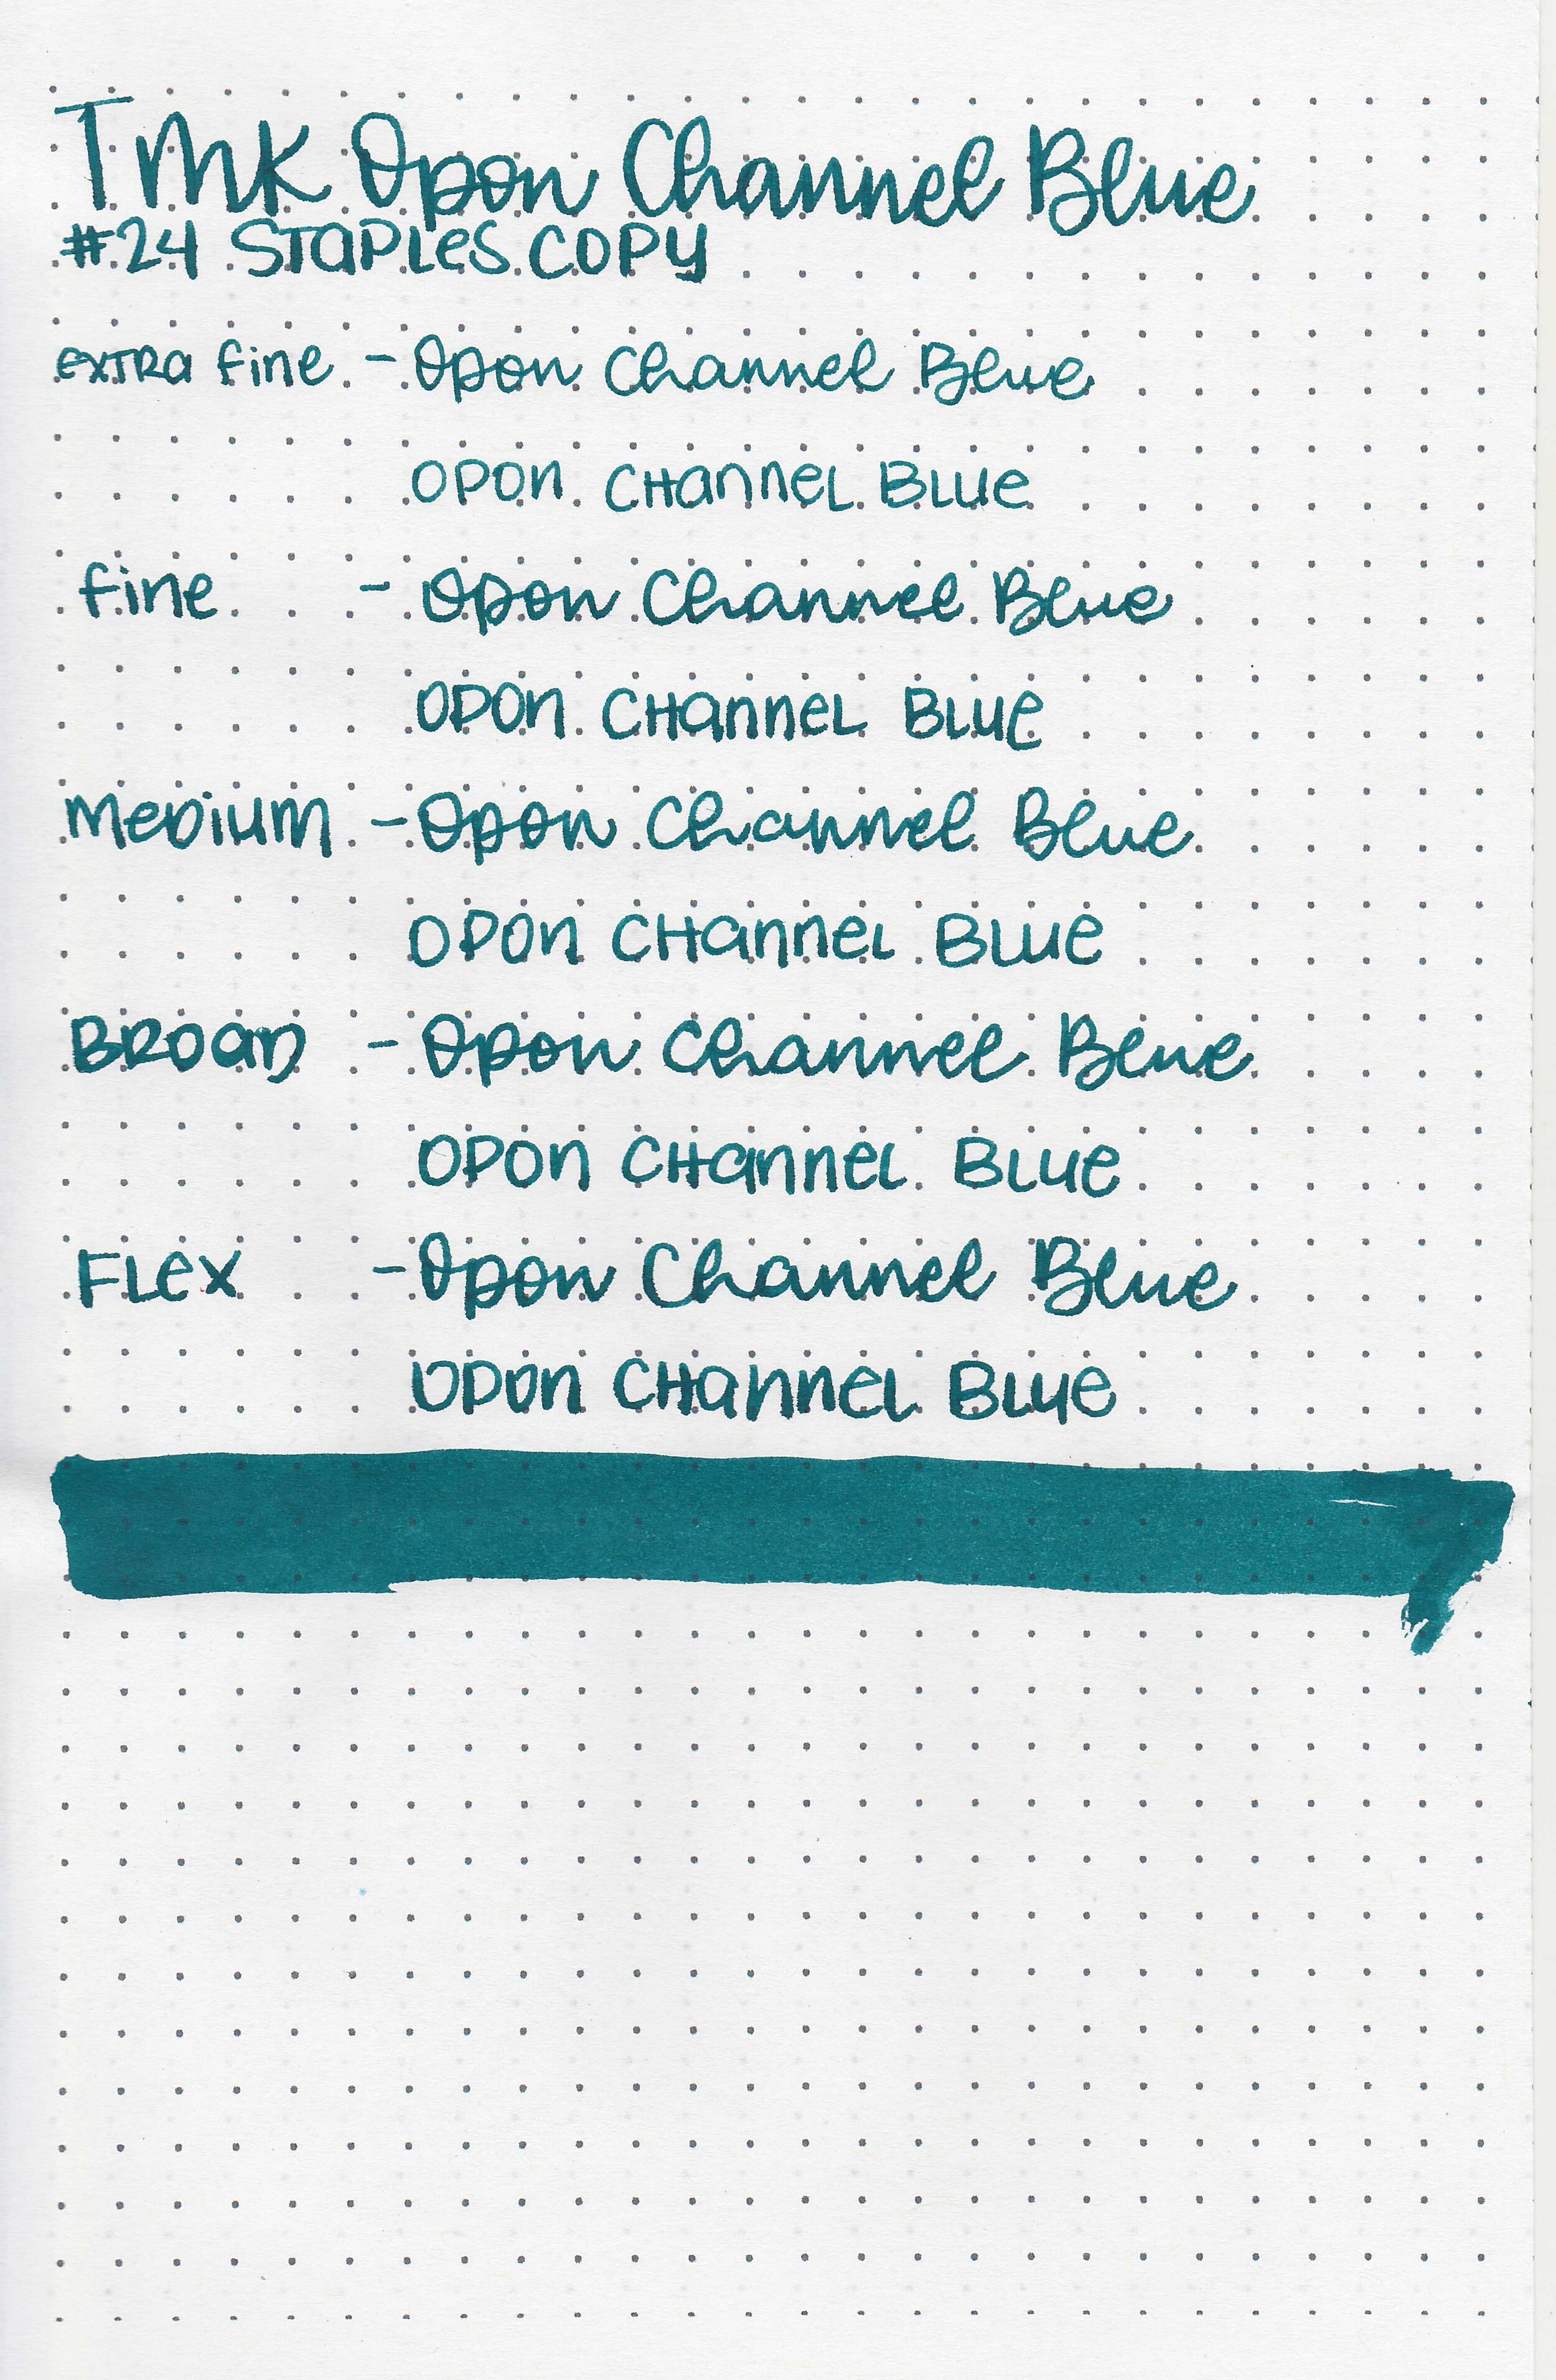 TMK Opon Channel Blue
#24 STaPLeS COPY
exTRa fine - Opon Channel Blue
OPOn CHannel BLUe
fine - Opon Channel Blue
OPOn CHanneL BLUe
MeDiUM - Opon Channel Blue
OPOn CHanneL BLUe
BROaD - Opon Channel Blue
OPOn CHanneL BLUe
FLex - Opon Channel Blue
OPOn CHanneL BLUe